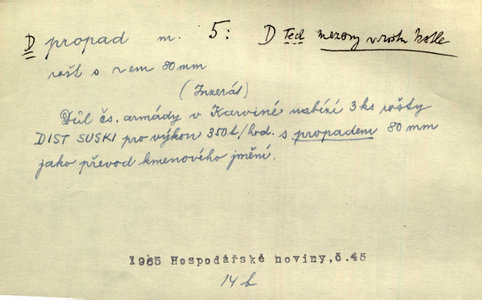 D propad m. 5: D Tech mezery v roštu kotle
rošt s  em 80 mm
(Inzerát)
Důl čs. armády v Karviné nabízí 3 ks rošty
DIST SUSKI pro výkon 350 t/hod. s propadem 80 mm
jako převod kmenového jmění.
1965 Hospodářské noviny,č.45
14 b